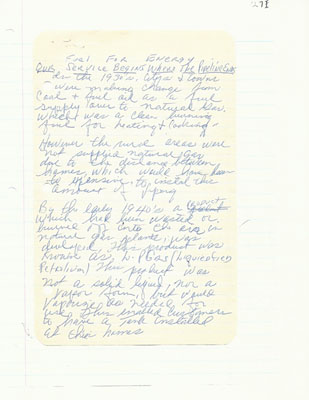 Fuel For Energy
Our Service Begins Where The Pipeline Ends
In the 1930's, Citys & towns
were making change from
Coal & fuel oil as a fuel
supply over to natural Gas.
Which was a clean burning
fuel for heating & cooking.
However the rural areas were
not supplied natural gas
due to the distance between
homes, which would have been
to expensive to install the
amount of piping
By the early 1940's a
which had been wasted or
burned off into the air in
natural gas plants, was
developed. This product was
known as, L-P Gas (Liquefied
Petroleum) This product was
not a solid liquid, nor a
vapor form, but would
vaporize as needed for
use. This enabled customers
to have a tank installed
at their homes